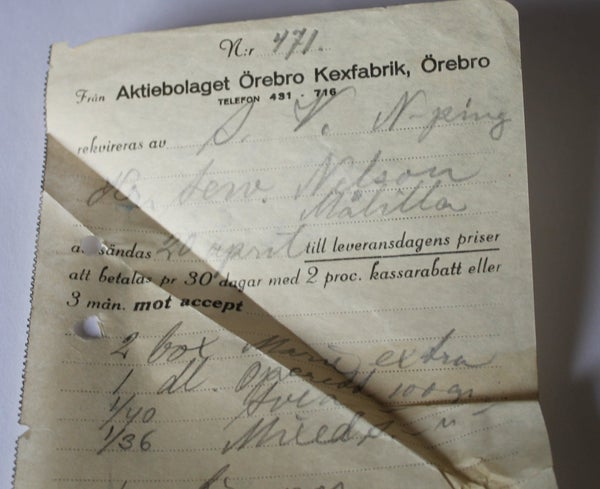 N:r 471.
Från Aktiebolaget Örebro Kexfabrik, Örebro
TELEFON 431 - 716
rekvireras av S. V. N-ping
Nelson
Målilla
a. sändas 20 april till leveransdagens priser
att betalas pr 30 dagar med 2 proc. kassarabatt eller
3 mån. mot accept
2 box Marie extra
1 dl.
1/40 100 gr
1/36 Mixed